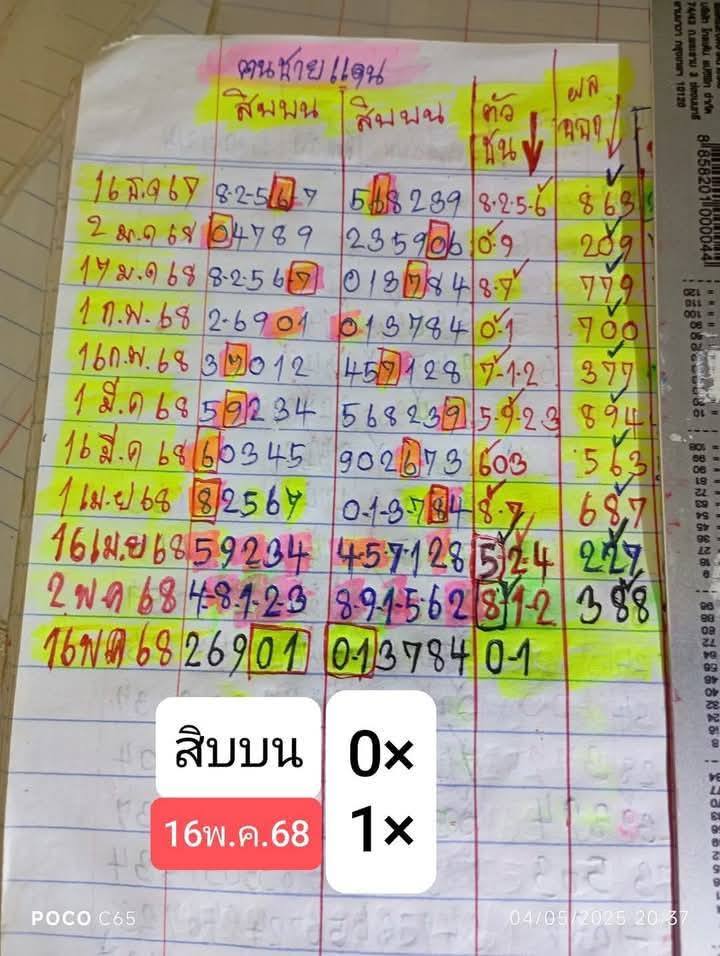 คนชายแดน
สิบบน สิบบน ตัวชน ผลออก
16 ธ.ค 67 8-2-5 6 7 568239 8-2-5-6 863
2 ม.ค 68 04789 235906 0-9 209
17 ม.ค 68 8-2-567 013784 8-7 779
1 ก.พ. 68 2-6901 013784 0-1 700
16 ก.พ. 68 37012 457128 7-1-2 377
1 มี.ค 68 59234 568239 5-9-2-3 894
16 มี.ค 68 60345 902673 603 563
1 เม.ย 68 82567 0-1-3-784 8-7 687
16 เม.ย 68 59234 4-57-128 5 2-4 227
2 พ.ค 68 4-8-1-2-3 8-9-1-5-62 8-1-2 388
16 พ.ค 68 26901 0-13784 0-1
สิบบน 0×
16พ.ค.68 1×
POCO C65
04/05/2025 20:37
8858201000044